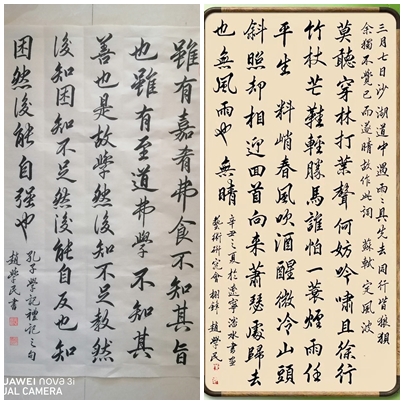 雖有嘉肴弗食不知其旨
也雖有至道弗學不知其
善也是故學然後知不足教然
後知困知不足然後能自反也知
困然後能自强也
孔子學記禮記之句
趙學民書
AWEI nova 3i
AL CAMERA
三月七日沙湖道中遇雨雨具先去同行皆狼狽
余獨不覺已而遂晴故作此詞 蘇軾 定風波
莫聽穿林打葉聲何妨吟嘯且徐行
竹杖芒鞋輕勝馬誰怕一蓑煙雨任
平生料峭春風吹酒醒微冷山頭
斜照却相迎回首向來蕭瑟處歸去
也無風雨也無晴
辛丑之夏於遼寧 水書畫
藝術研究會 趙學民